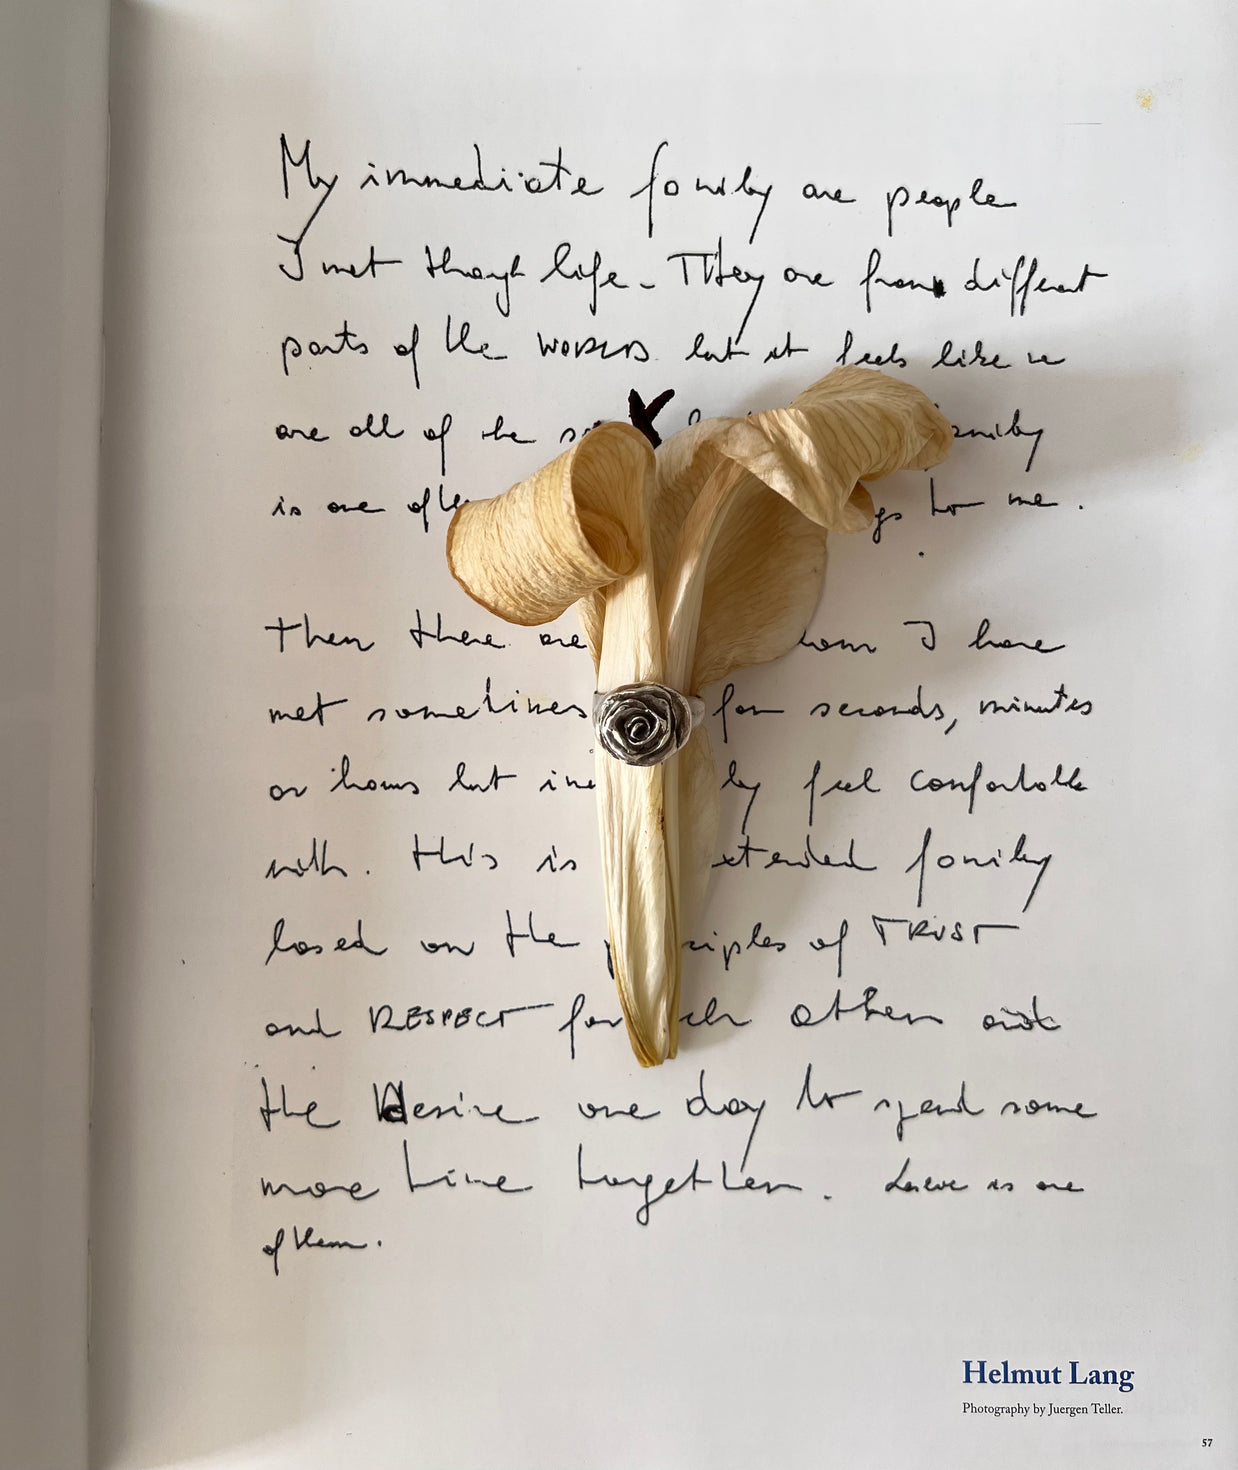 My immediate family are people
I met though life - They are from different
parts of the WORLD but it feels like we
are all of the family
is one of the to me.
Then there are whom I have
met sometimes for seconds, minutes
or hours but feel comfortable
with. This is extended family
based on the principles of TRUST
and RESPECT for each other and
the desire one day to spend some
more time together. is one
of them.
Helmut Lang
Photography by Juergen Teller.
57